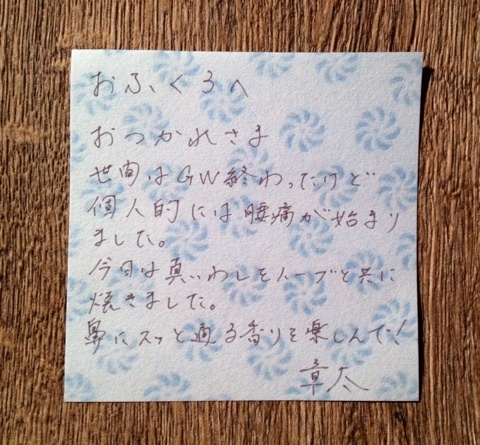 おふくろへ
おつかれさま
世間はGW終わったけど
個人的には腰痛が始まり
ました。
今日は真いわしをハーブと共に
焼きました。
鼻にスッと通る香りを楽しんで!
章太